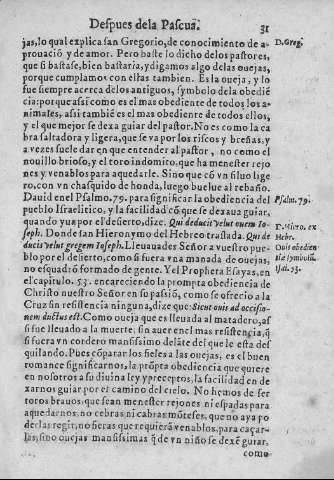 Despues dela Pascua. 31
jas, lo qual explica san Gregorio, de conocimiento de a- D. Greg.
prouació y de amor. Pero baste lo dicho delos pastores,
que si bastase, bien bastaria, y digamos algo delas ouejas,
porque cumplamos con ellas tambien. Es la oueja, y lo
fue siempre acerca delos antiguos, symbolo dela obedié
cia: porque assi como es el mas obediente de todos los a-
nimales, assi tambié es el mas obediente de todos ellos,
y el que mejor se dexa guiar del pastor. No es como la ca
bra saltadora y ligera, que se va por los riscos y breñas, y
a vezes suele dar en que entender al pastor, no como el
nouillo brioso, y el toro indomito, que ha menester rejo
nes y venablos para aquedarle. Sino que có vn siluo lige
ro, con vn chasquido de honda, luego buelue al rebaño.
Dauid en el Psalmo. 79. para significar la obediencia del Psalm. 79.
pueblo Israelitico, y la facilidad có que se dexaua guiar,
quando yua por el desierto, dize: Qui deducis velut ouem Io-
seph. Donde san Hieronymo del Hebreo traslada. Qui de D. Hiero. ex Hebr.
ducis velut gregem Ioseph. Lleuauades Señor a vuestro pue- Ouis obedien
blo por el desierto, como si fuera vna manada de ouejas, tie symbolũ.
no esquadró formado de gente. Y el Propheta Esayas, en Isai. 53.
el capitulo. 53. encareciendo la prompta obediencia de
Christo nuestro Señor en su passió, como se ofrecio a la
Cruz sin resistencia ninguna, dize que: Sicut ouis ad occisio-
nem ductus est. Como oueja que es lleuada al matadero, as
si fue lleuado a la muerte, sin auer en el mas resistencia, q̃
si fuera vn cordero mansissimo deláte del que le esta des
quilando. Pues cóparar los fieles a las ouejas, es el buen
romance significarnos, la prõpta obediencia que quiere
en nosotros a su diuina ley y preceptos, la facilidad en de
xarnos guiar por el camino del cielo. No hemos de ser
toros brauos, que sean menester rejones ni espadas para
aquedarnos, no cebras ni cabras mõteses, que no aya po
der las regir, no fieras que requieran venablos, para caçar-
las, sino ouejas mansissimas q̃ de vn niño se dexé guiar,
como